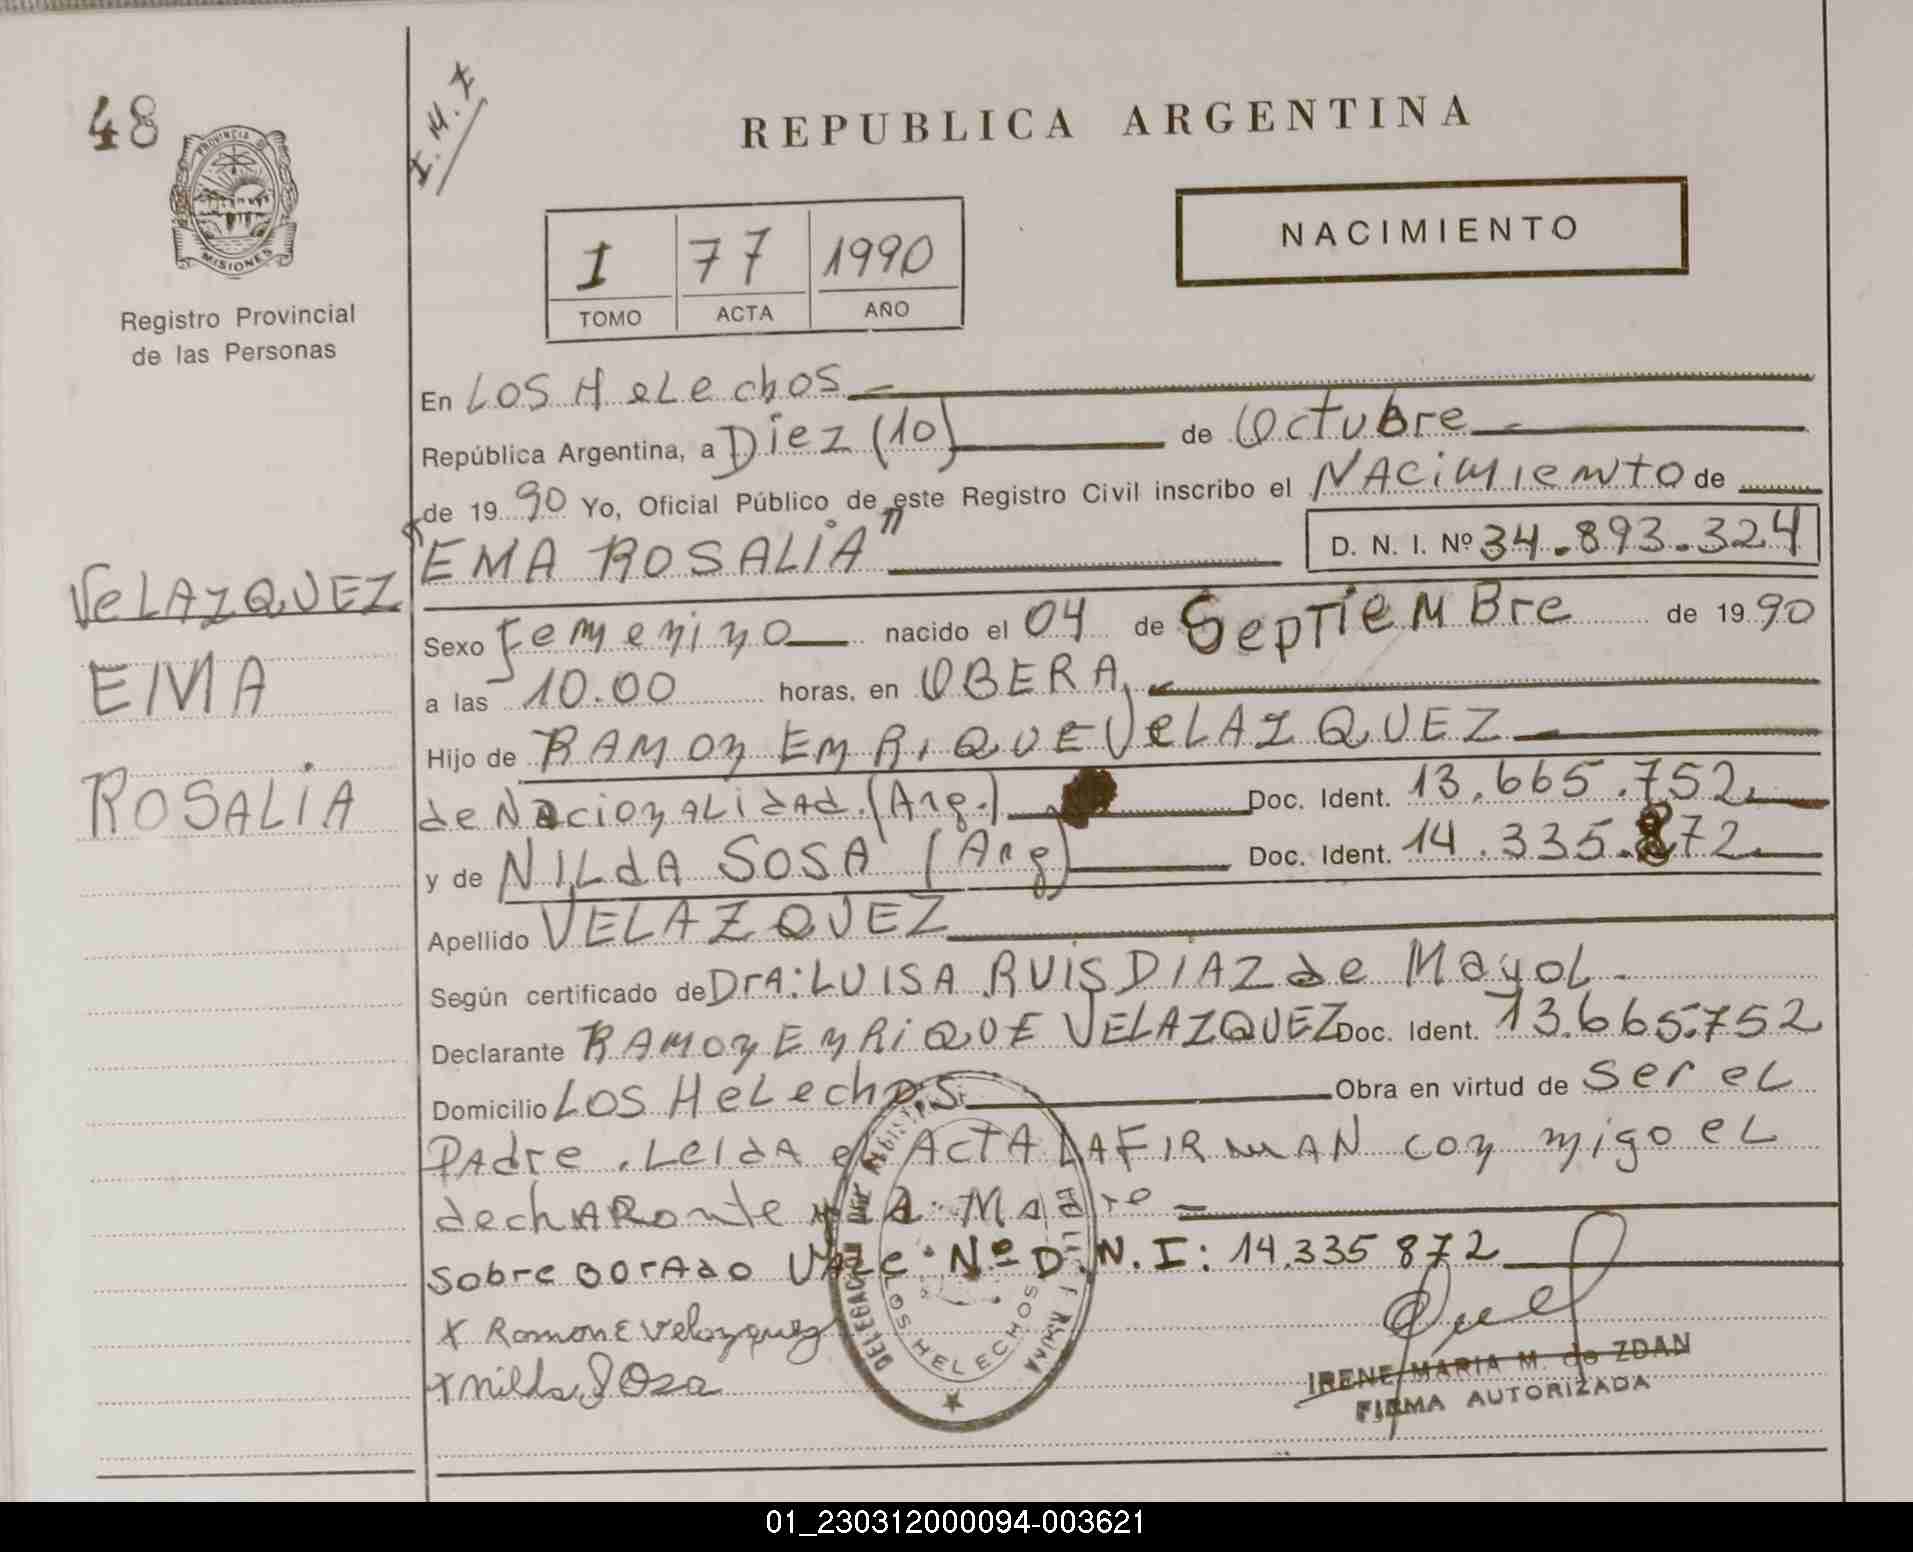 48
I.M.Z
PROVINCIA DE
MISIONES
Registro Provincial
de las Personas
REPUBLICA ARGENTINA
NACIMIENTO
I 77 1990
TOMO ACTA AÑO
En LOS HeLechos
República Argentina, a Diez (10) de Octubre
de 1990 Yo, Oficial Público de este Registro Civil inscribo el NACimiento de
"EMA ROSALiA" D. N. I. Nº 34.893.324
VeLAZQUEZ
EMA
ROSALiA
Sexo Femenino nacido el 04 de SepTiEMBre de 1990
a las 10.00 horas, en OBERA
Hijo de RAMON ENRiQUE VeLAZQUEZ
de NacionALidAd (Arg.) Doc. Ident. 13.665.752
y de NILdA SOSA (Arg) Doc. Ident. 14.335.872
Apellido VELAZQUEZ
Según certificado de DrA: LUISA RUIS DIAZ de MayoL
Declarante RAMON ENRiQUE VELAZQUEZ Doc. Ident. 13.665.752
Domicilio LOS HeLechos Obra en virtud de ser eL
PAdre. LeidA el ACTA LA FIRMAN con migo eL
decLARante y LA Madre
sobre BorAdo VALe Nº D.N.I: 14.335 872
x Ramon E Velazquez
x Nilda Sosa
LOS HELECHOS
IRENE MARIA M. de ZDAN
FIRMA AUTORIZADA
01_230312000094-003621